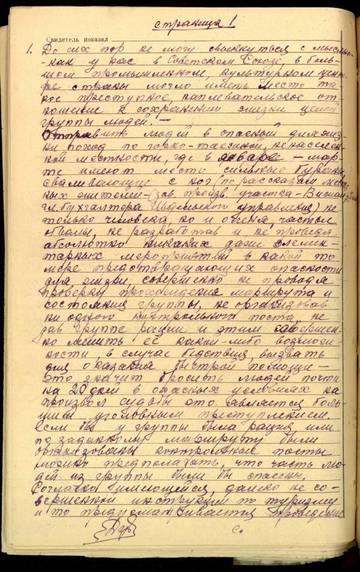 страница 1.
Свидетель показал
1. До сих пор не могу свыкнуться с мыслью -
как у нас в Советском Союзе, в боль-
шом промышленном, культурном цент-
ре страны могло иметь место та-
кое преступное наплевательское от-
ношение к сохранению жизни целой
группы людей! -
Отправить людей в опасный длинный
поход по горно-таежной, ненаселен-
ной местности, где в феврале - мар-
те имеют место сильные бураны,
сваливающие с ног по рассказам мест-
ных жителей
гл. бухгалтера Ивдельского управления) не
только человека, но и оленя, частые
не разработав и не проведя
абсолютно никаких даже элемен-
тарных мероприятий в какой-то
мере предотвращающих опасность
для жизни, совершенно не проводя
проверки прохождения маршрута и
состояния группы, не организовав
ни одного контрольного поста, не
дав группе рации и этим совершен-
но лишить её какой-либо возможно-
сти в случае бедствия, вызвать
для оказания быстрой помощи -
это значит бросить людей почти
на 20 дней в опасных условиях на
произвол судьбы это является боль-
шим уголовным преступлением.
Если бы у группы была рация, или
по заданному маршруту были
организованы контрольные посты
можно предполагать, что часть лю-
дей из группы были бы спасены.
Согласно имеющейся, далеко не со-
вершенной инструкции по туризму
и то предусматривается проведение